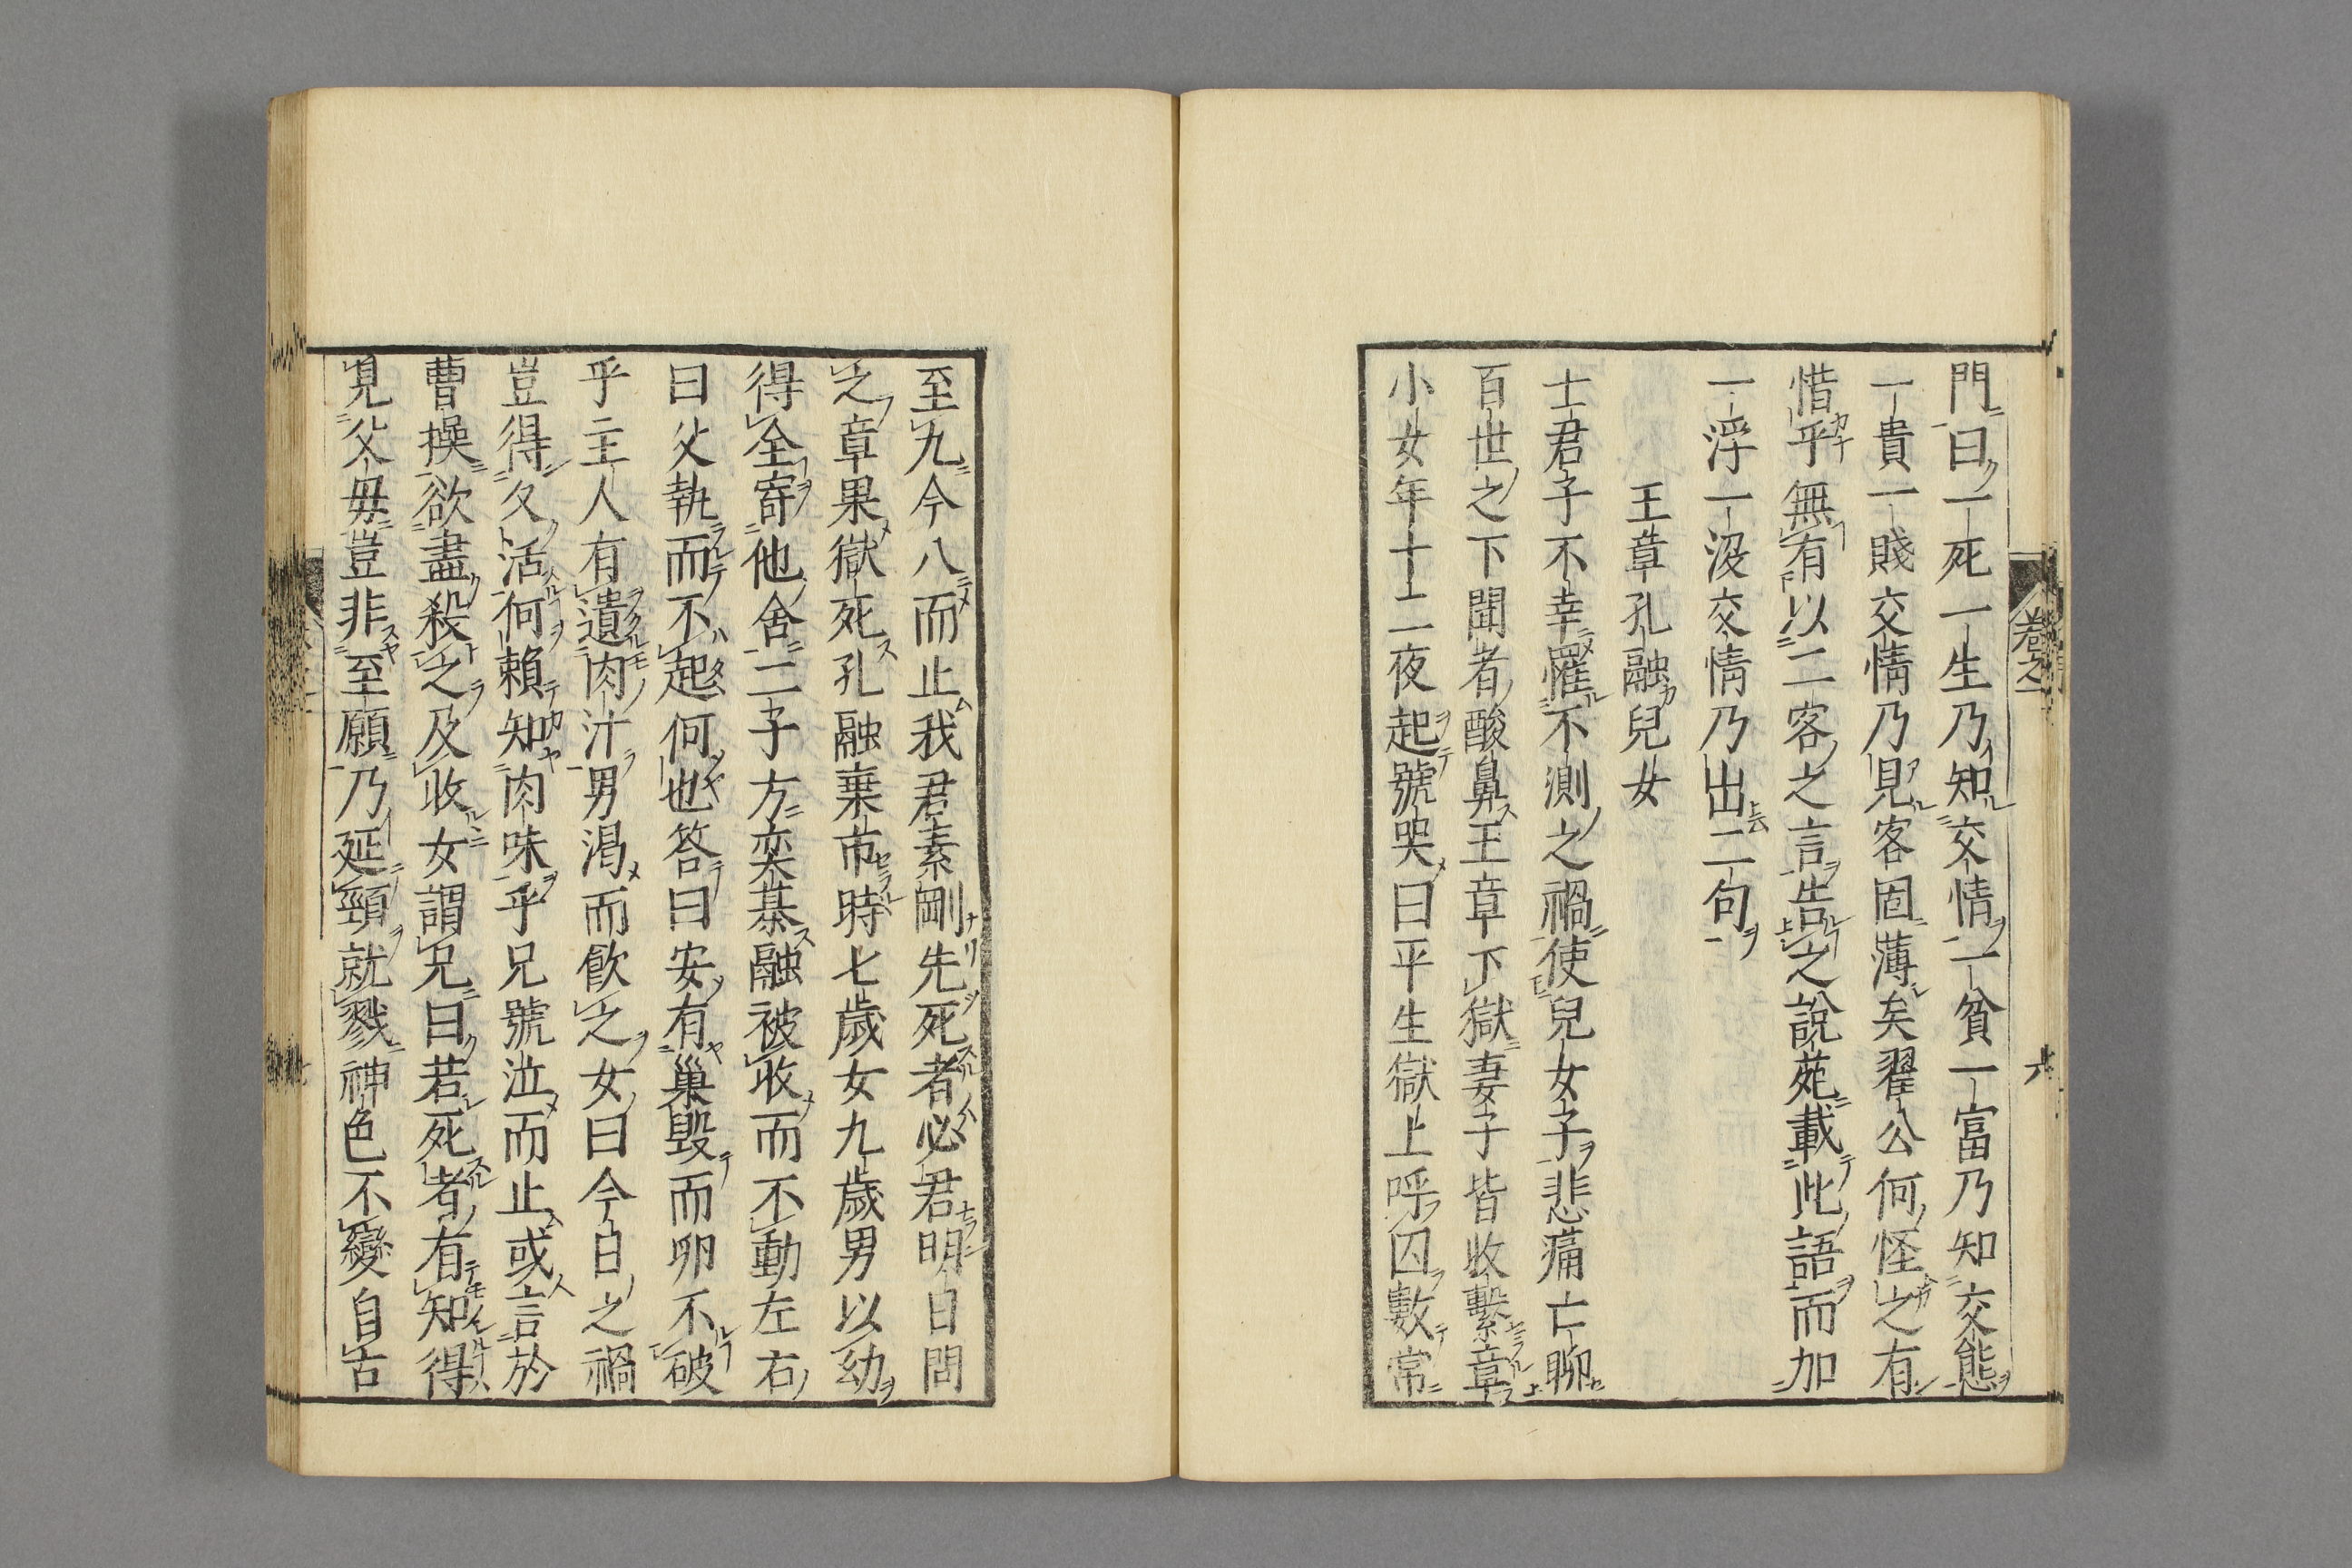 門曰一死一生乃知交情一貧一富乃知交態
一貴一賤交情乃見客固薄矣翟公何怪之有
惜乎無有以二客之言告之說苑載此語而加
一浮一沒交情乃出二句
王章孔融兒女
士君子不幸罹不測之禍使兒女子悲痛亡聊
百世之下聞者酸鼻王章下獄妻子皆收繫章
小女年十二夜起號哭曰平生獄上呼囚數常
至九今八而止我君素剛先死者必君明日問
之章果獄死孔融棄市時七歲女九歲男以幼
得全寄他舍二子方奕碁融被收而不動左右
曰父執而不起何也答曰安有巢毀而卵不破
乎主人有遺肉汁男渴而飲之女曰今日之禍
豈得久活何賴知肉味乎兄號泣而止或言於
曹操欲盡殺之及收女謂兄曰若死者有知得
見父母豈非至願乃延頸就戮神色不變自古